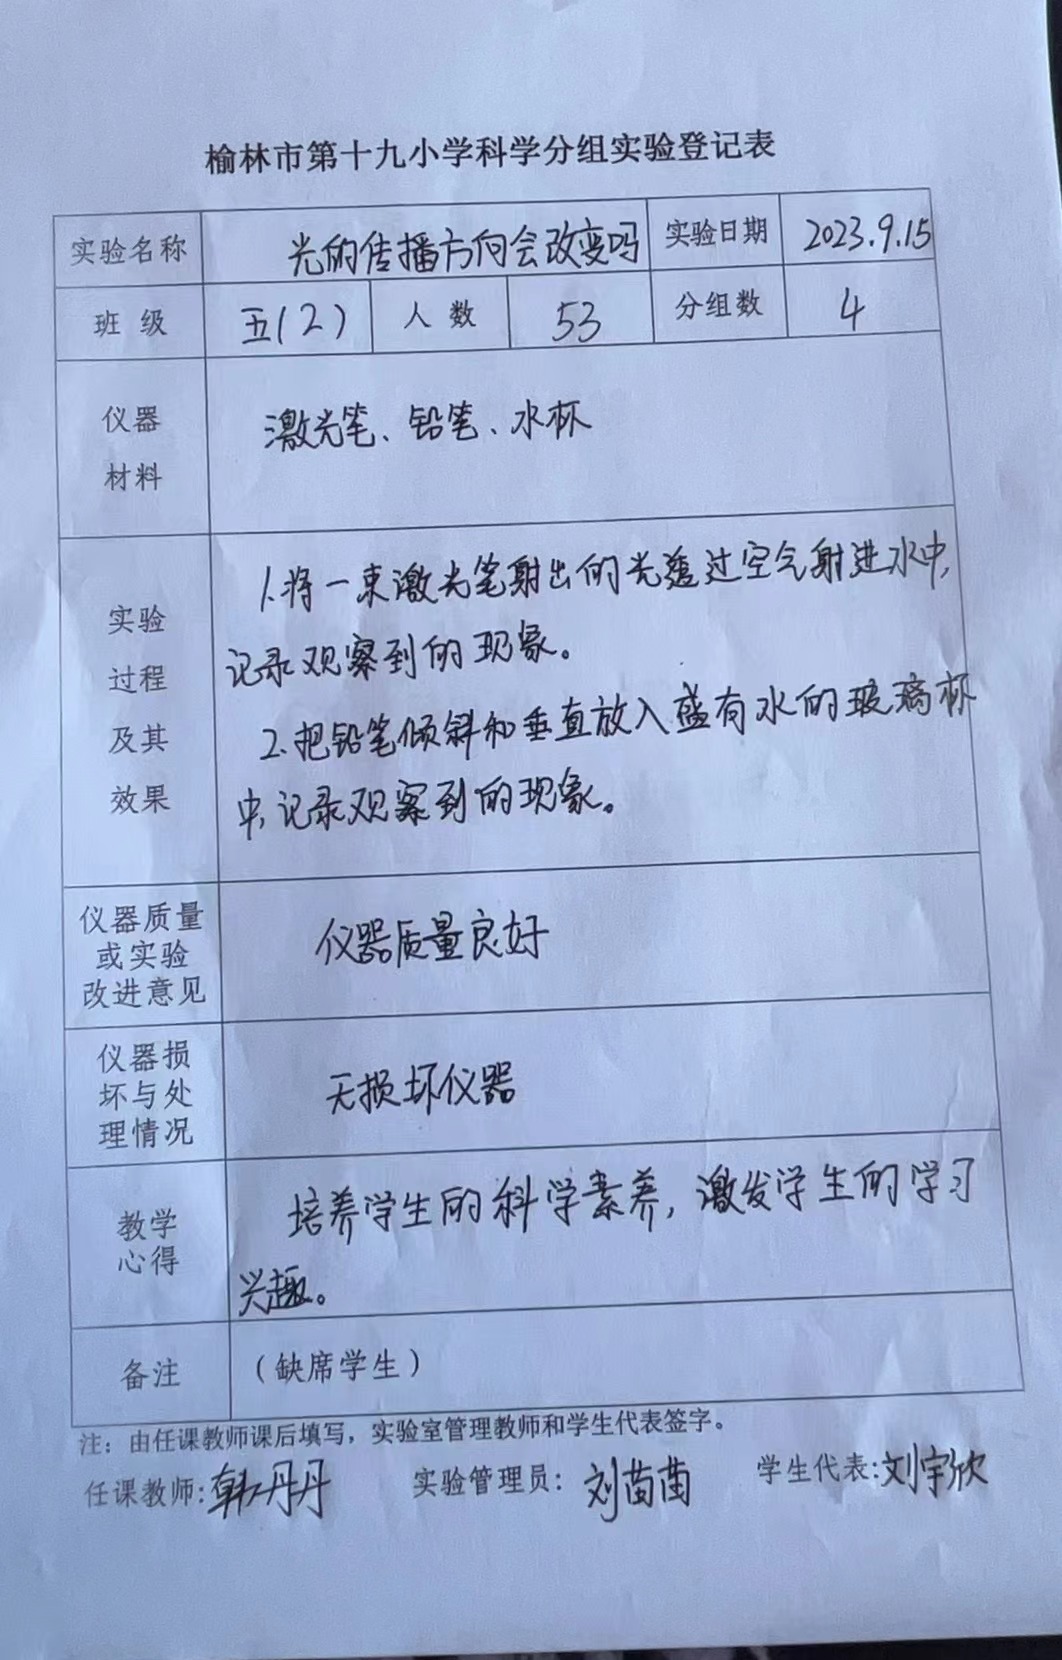 榆林市第十九小学科学分组实验登记表
实验名称 光的传播方向会改变吗 实验日期 2023.9.15
班 级 五(2) 人 数 53 分组数 4
仪器
材料
激光笔、铅笔、水杯
实验
过程
及其
效果
1.将一束激光笔射出的光透过空气射进水中,
记录观察到的现象。
2.把铅笔倾斜和垂直放入盛有水的玻璃杯
中,记录观察到的现象。
仪器质量
或实验
改进意见
仪器质量良好
仪器损
坏与处
理情况
无损坏仪器
教学
心得
培养学生的科学素养,激发学生的学习
兴趣。
备注 (缺席学生)
注:由任课教师课后填写,实验室管理教师和学生代表签字。
任课教师:韩丹丹 实验管理员:刘苗苗 学生代表:刘宇欣